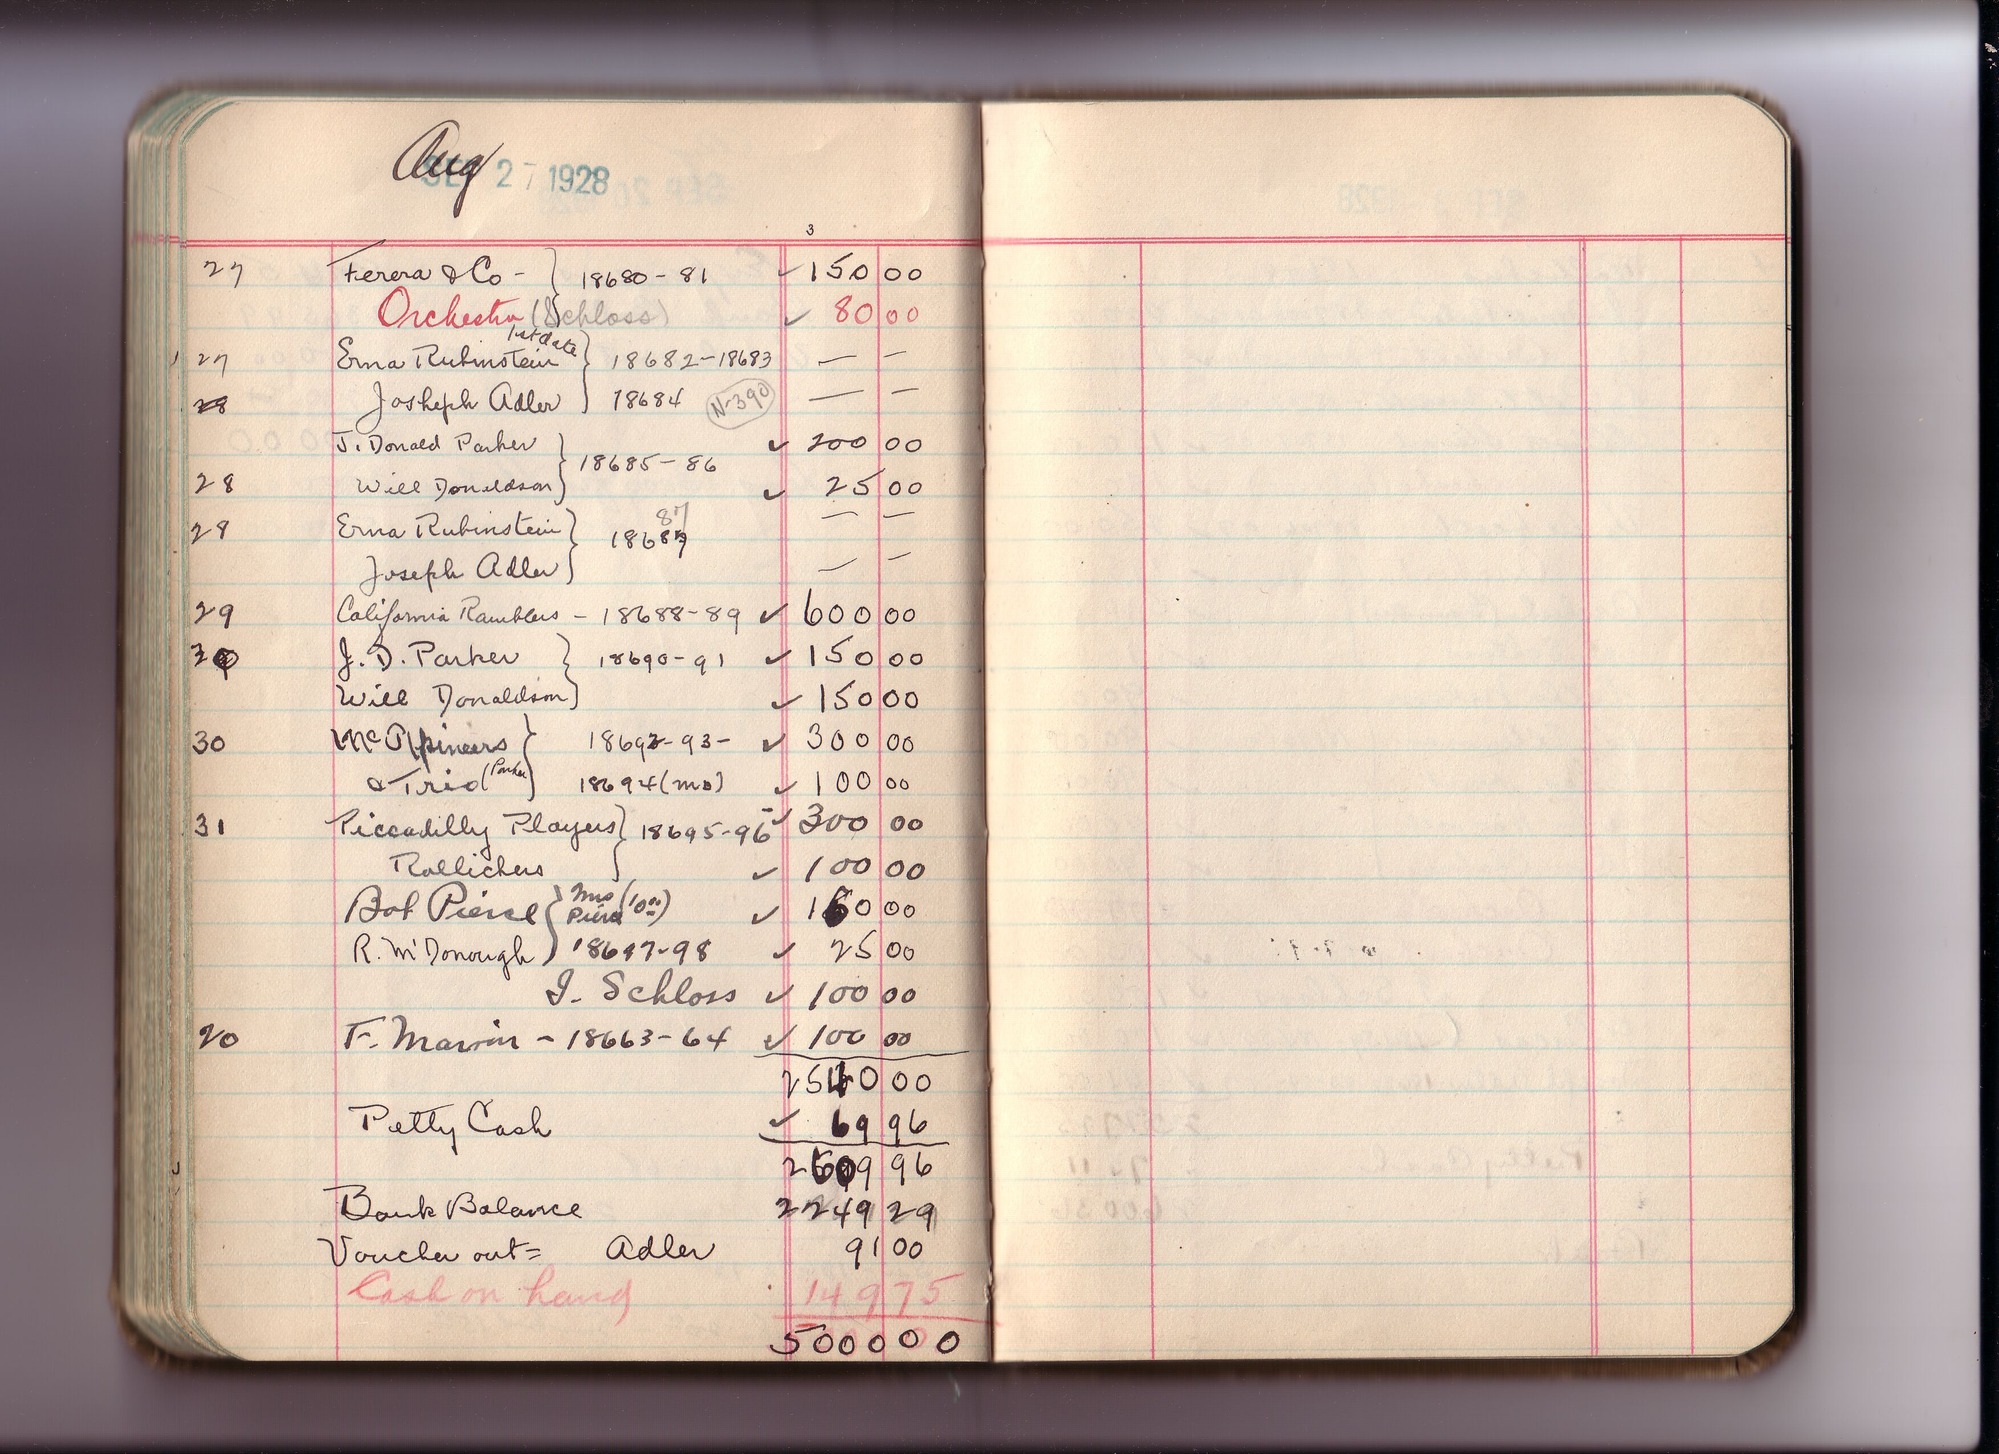 Aug SEP 27 1928
3
27 Ferera & Co - 18680-81 ✓ 150 00
Orchestra (Schloss) ✓ 80 00
1st date
27 Erna Rubinstein 18682-18683 — —
28 Josheph Adler 18684 N-390 — —
J. Donald Parker ✓ 200 00
18685-86
28 Will Donaldson ✓ 25 00
87
28 Erna Rubinstein 18687 — —
Joseph Adler — —
29 California Ramblers - 18688-89 ✓ 600 00
30 J. D. Parker 18690-91 ✓ 150 00
Will Donaldson ✓ 150 00
30 18692-93- ✓ 300 00
& Trio (Parker) 18694 (mo) ✓ 100 00
31 Piccadilly Players 18695-96 ✓ 300 00
Rollickers ✓ 100 00
Bob Pierce Mrs Pierce (10 00) ✓ 160 00
R. McDonough 18697-98 ✓ 25 00
I. Schloss ✓ 100 00
20 F. Marvin - 18663-64 ✓ 100 00
2540 00
Petty Cash ✓ 69 96
2609 96
Bank Balance 2249 29
Voucher out = Adler 91 00
Cash on hand 149 75
5000 00